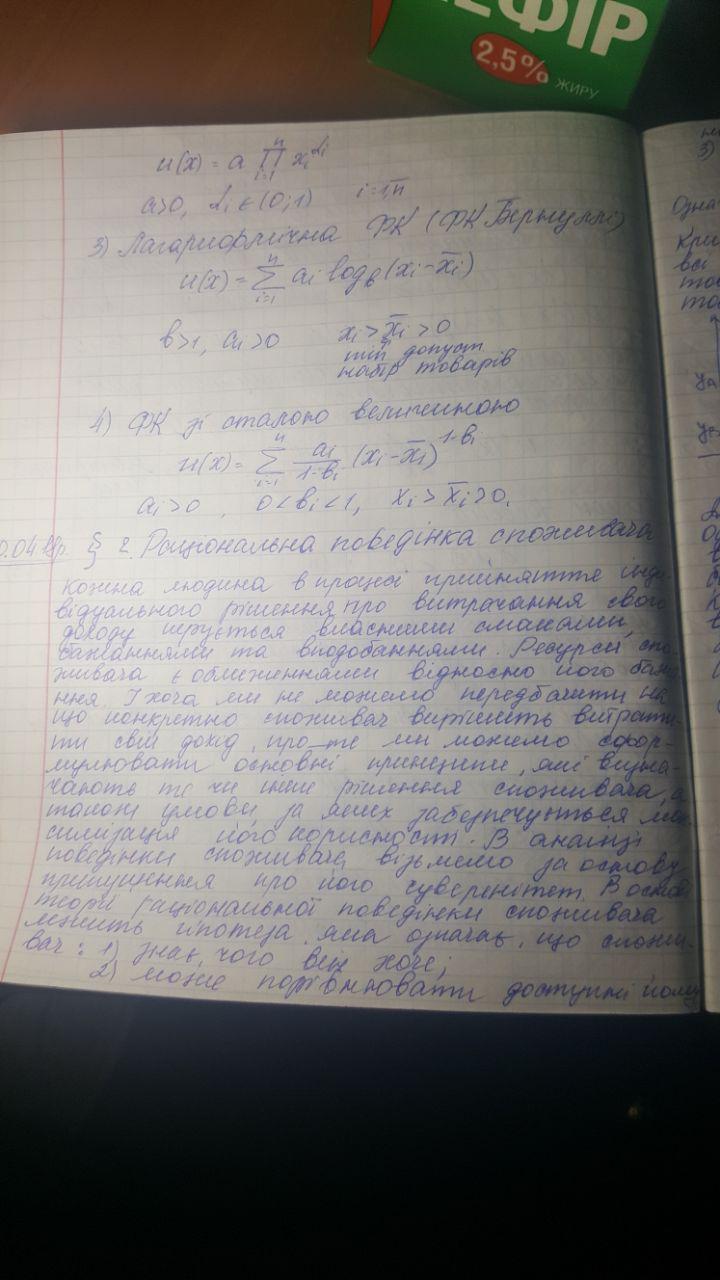 ЕФІР
2,5% ЖИРУ
u(x) = a ∏ᵢ₌₁ⁿ xᵢ^αᵢ
a>0, αᵢ ∈ (0;1) i=1,n̅
3) Логарифмічна ФК (ФК Бернуллі)
u(x) = ∑ᵢ₌₁ⁿ aᵢ log_b (xᵢ - x̅ᵢ)
b>1, aᵢ>0 xᵢ > x̅ᵢ > 0
min допуст
набір товарів
4) ФК зі сталою величиною
u(x) = ∑ᵢ₌₁ⁿ aᵢ/(1-bᵢ) (xᵢ - x̅ᵢ)^(1-bᵢ)
aᵢ>0, 0<bᵢ<1, xᵢ > x̅ᵢ > 0.
§ 2. Раціональна поведінка споживача
Кожна людина в процесі прийняття інди-
відуального рішення про витрачання свого
доходу керується власними смаками,
бажаннями та вподобаннями. Ресурси спо-
живача є обмеженнями відносно його бажа-
ння. І хоча ми не можемо передбачити на
що конкретно споживач вирішить витрати-
ти свій дохід, про-те ми можемо сфор-
мулювати основні принципи, які визна-
чають те чи інше рішення споживача, а
також умови, за яких забезпечується мак-
симізація його корисності. В аналізі
поведінки споживача візьмемо за основу
припущення про його суверенітет. В основі
теорії раціональної поведінки споживача
лежить гіпотеза, яка означає, що спожи-
вач: 1) знає, чого він хоче;
2) може порівнювати доступні йому